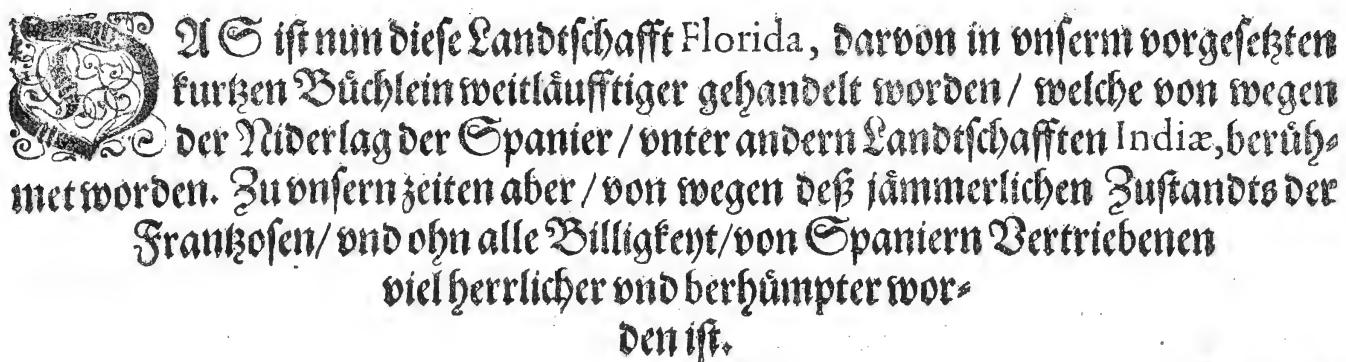 DAS ist nun diese Landtschafft Florida, darvon in vnserm vorgesetzten
kurtzen Bůchlein weitlåufftiger gehandelt worden / welche von wegen
der Niderlag der Spanier / vnter andern Landtschafften Indiæ, berůh⸗
met worden. Zu vnsern zeiten aber / von wegen deß jåmmerlichen Zustandts der
Frantzosen / vnd ohn alle Billigkeyt / von Spaniern Vertriebenen
viel herrlicher vnd berhůmpter wor⸗
den ist.